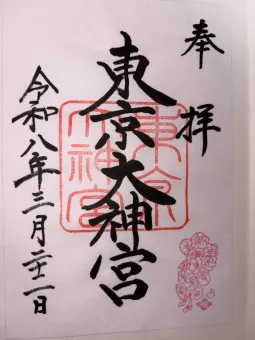 奉拝
東京大神宮
令和八年三月二十一日
東京大神宮